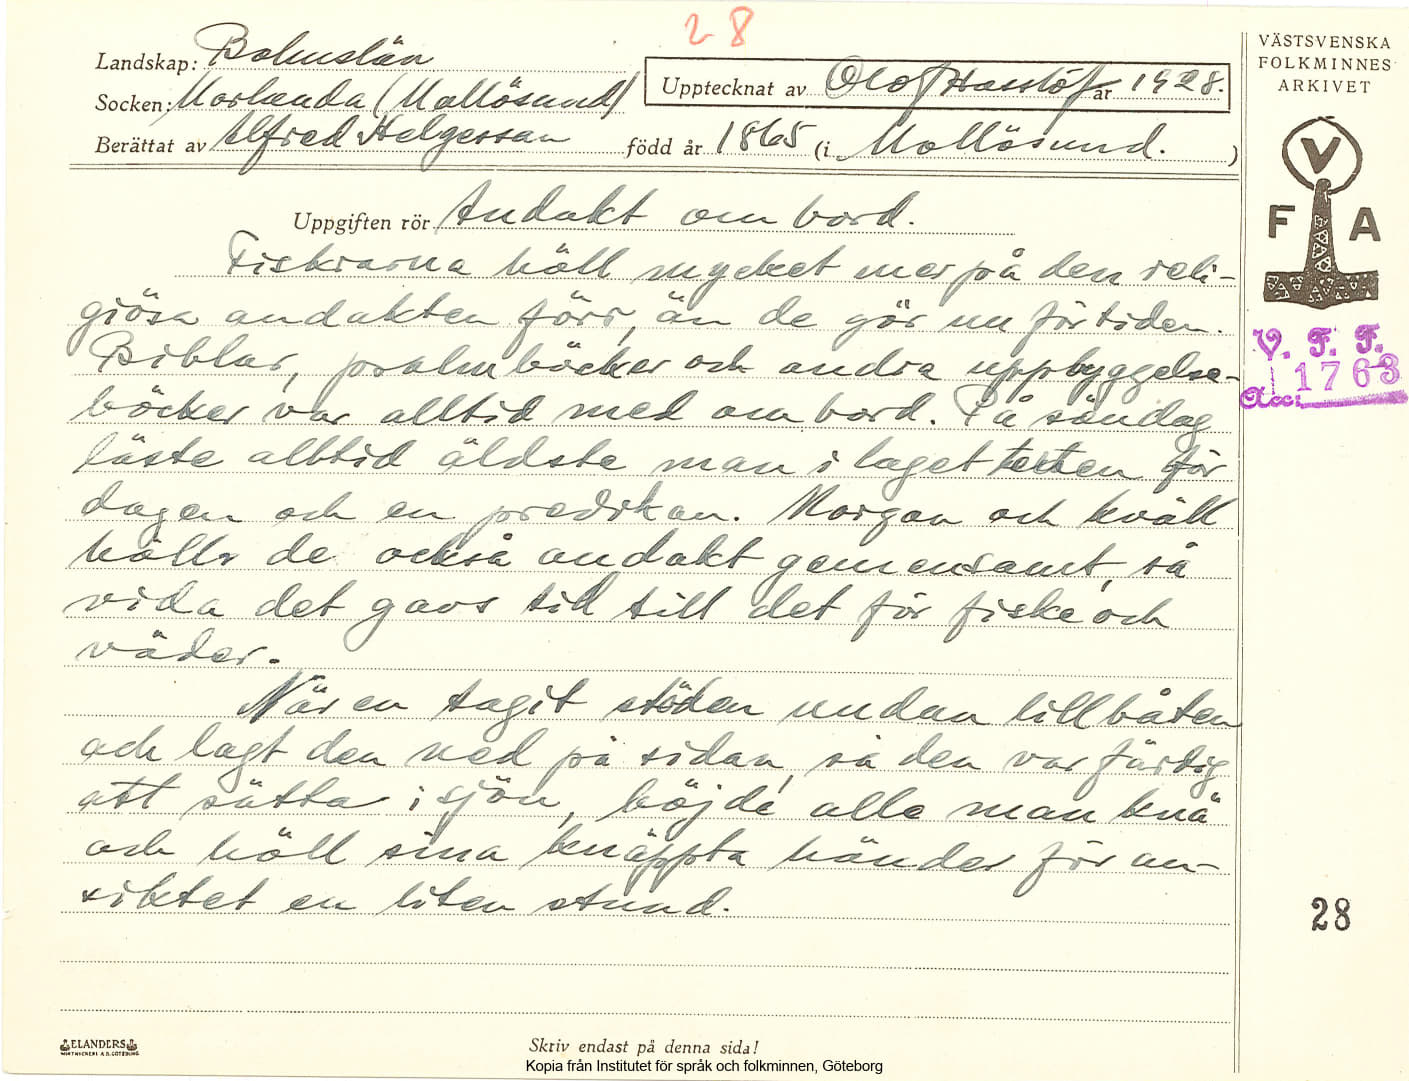 28
Landskap: Bohuslän
Upptecknat av Olof Hasslöf år 1928.
Socken: Morlanda (Mollösund)
Berättat av Alfred Helgesson född år 1865 (i Mollösund. )
VÄSTSVENSKA
FOLKMINNES
ARKIVET
V
F A
V. F. F.
Acc: 1763
Uppgiften rör Andakt om bord.
Fiskrarna höll mycket mer på den reli-
giösa andakten förr, än de gör nu för tiden.
Biblar, psalmböcker och andra uppbyggelse-
böcker var alltid med om bord. På söndag
läste alltid äldste man i laget texten för
dagen och en predikan. Morgon och kväll
hölls de också andakt gemensamt, så
vida det gavs tid till det för fiske och
väder.
När en tagit stöden undan lillbåten
och lagt den ned på sidan, så den var färdig
att sätta i sjön, böjde alla man knä
och höll sina knäppta händer för an-
siktet en liten stund.
28
ELANDERS
BOKTRYCKERI A.B. GÖTEBORG
Skriv endast på denna sida!
Kopia från Institutet för språk och folkminnen, Göteborg